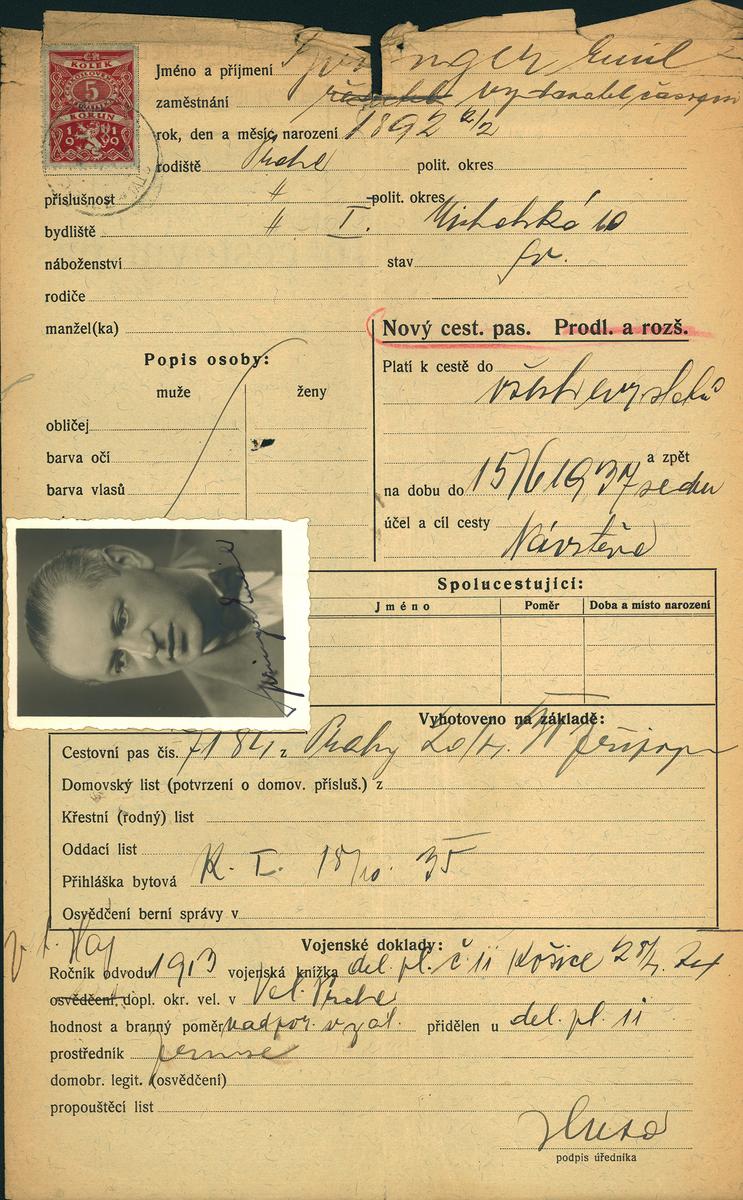 KOLEK
5
KORUN
1919
Jméno a příjmení Springer Emil
zaměstnání
rok, den a měsíc narození 1892
rodiště Praha polit. okres
příslušnost " polit. okres
bydliště " I. Michalská 10
náboženství stav
rodiče
manžel(ka)
Nový cest. pas. Prodl. a rozš.
Popis osoby:
muže ženy
obličej
barva očí
barva vlasů
Platí k cestě do
a zpět
na dobu do 15/6 1937
účel a cíl cesty Návštěva
Springer Emil
Spolucestující:
Jméno Poměr Doba a místo narození
Vyhotoveno na základě:
Cestovní pas čís. 7184 z Prahy
Domovský list (potvrzení o domov. přísluš.) z
Křestní (rodný) list
Oddací list
Přihláška bytová R. I. 18/10. 35
Osvědčení berní správy v
Vojenské doklady:
Ročník odvodu 1913 vojenská knížka del. pl. č. 11 Košice
osvědčení, dopl. okr. vel. v Vel. Praha
hodnost a branný poměr nadpor. v zál. přidělen u del. pl. 11
prostředník
domobr. legit. (osvědčení)
propouštěcí list
podpis úředníka